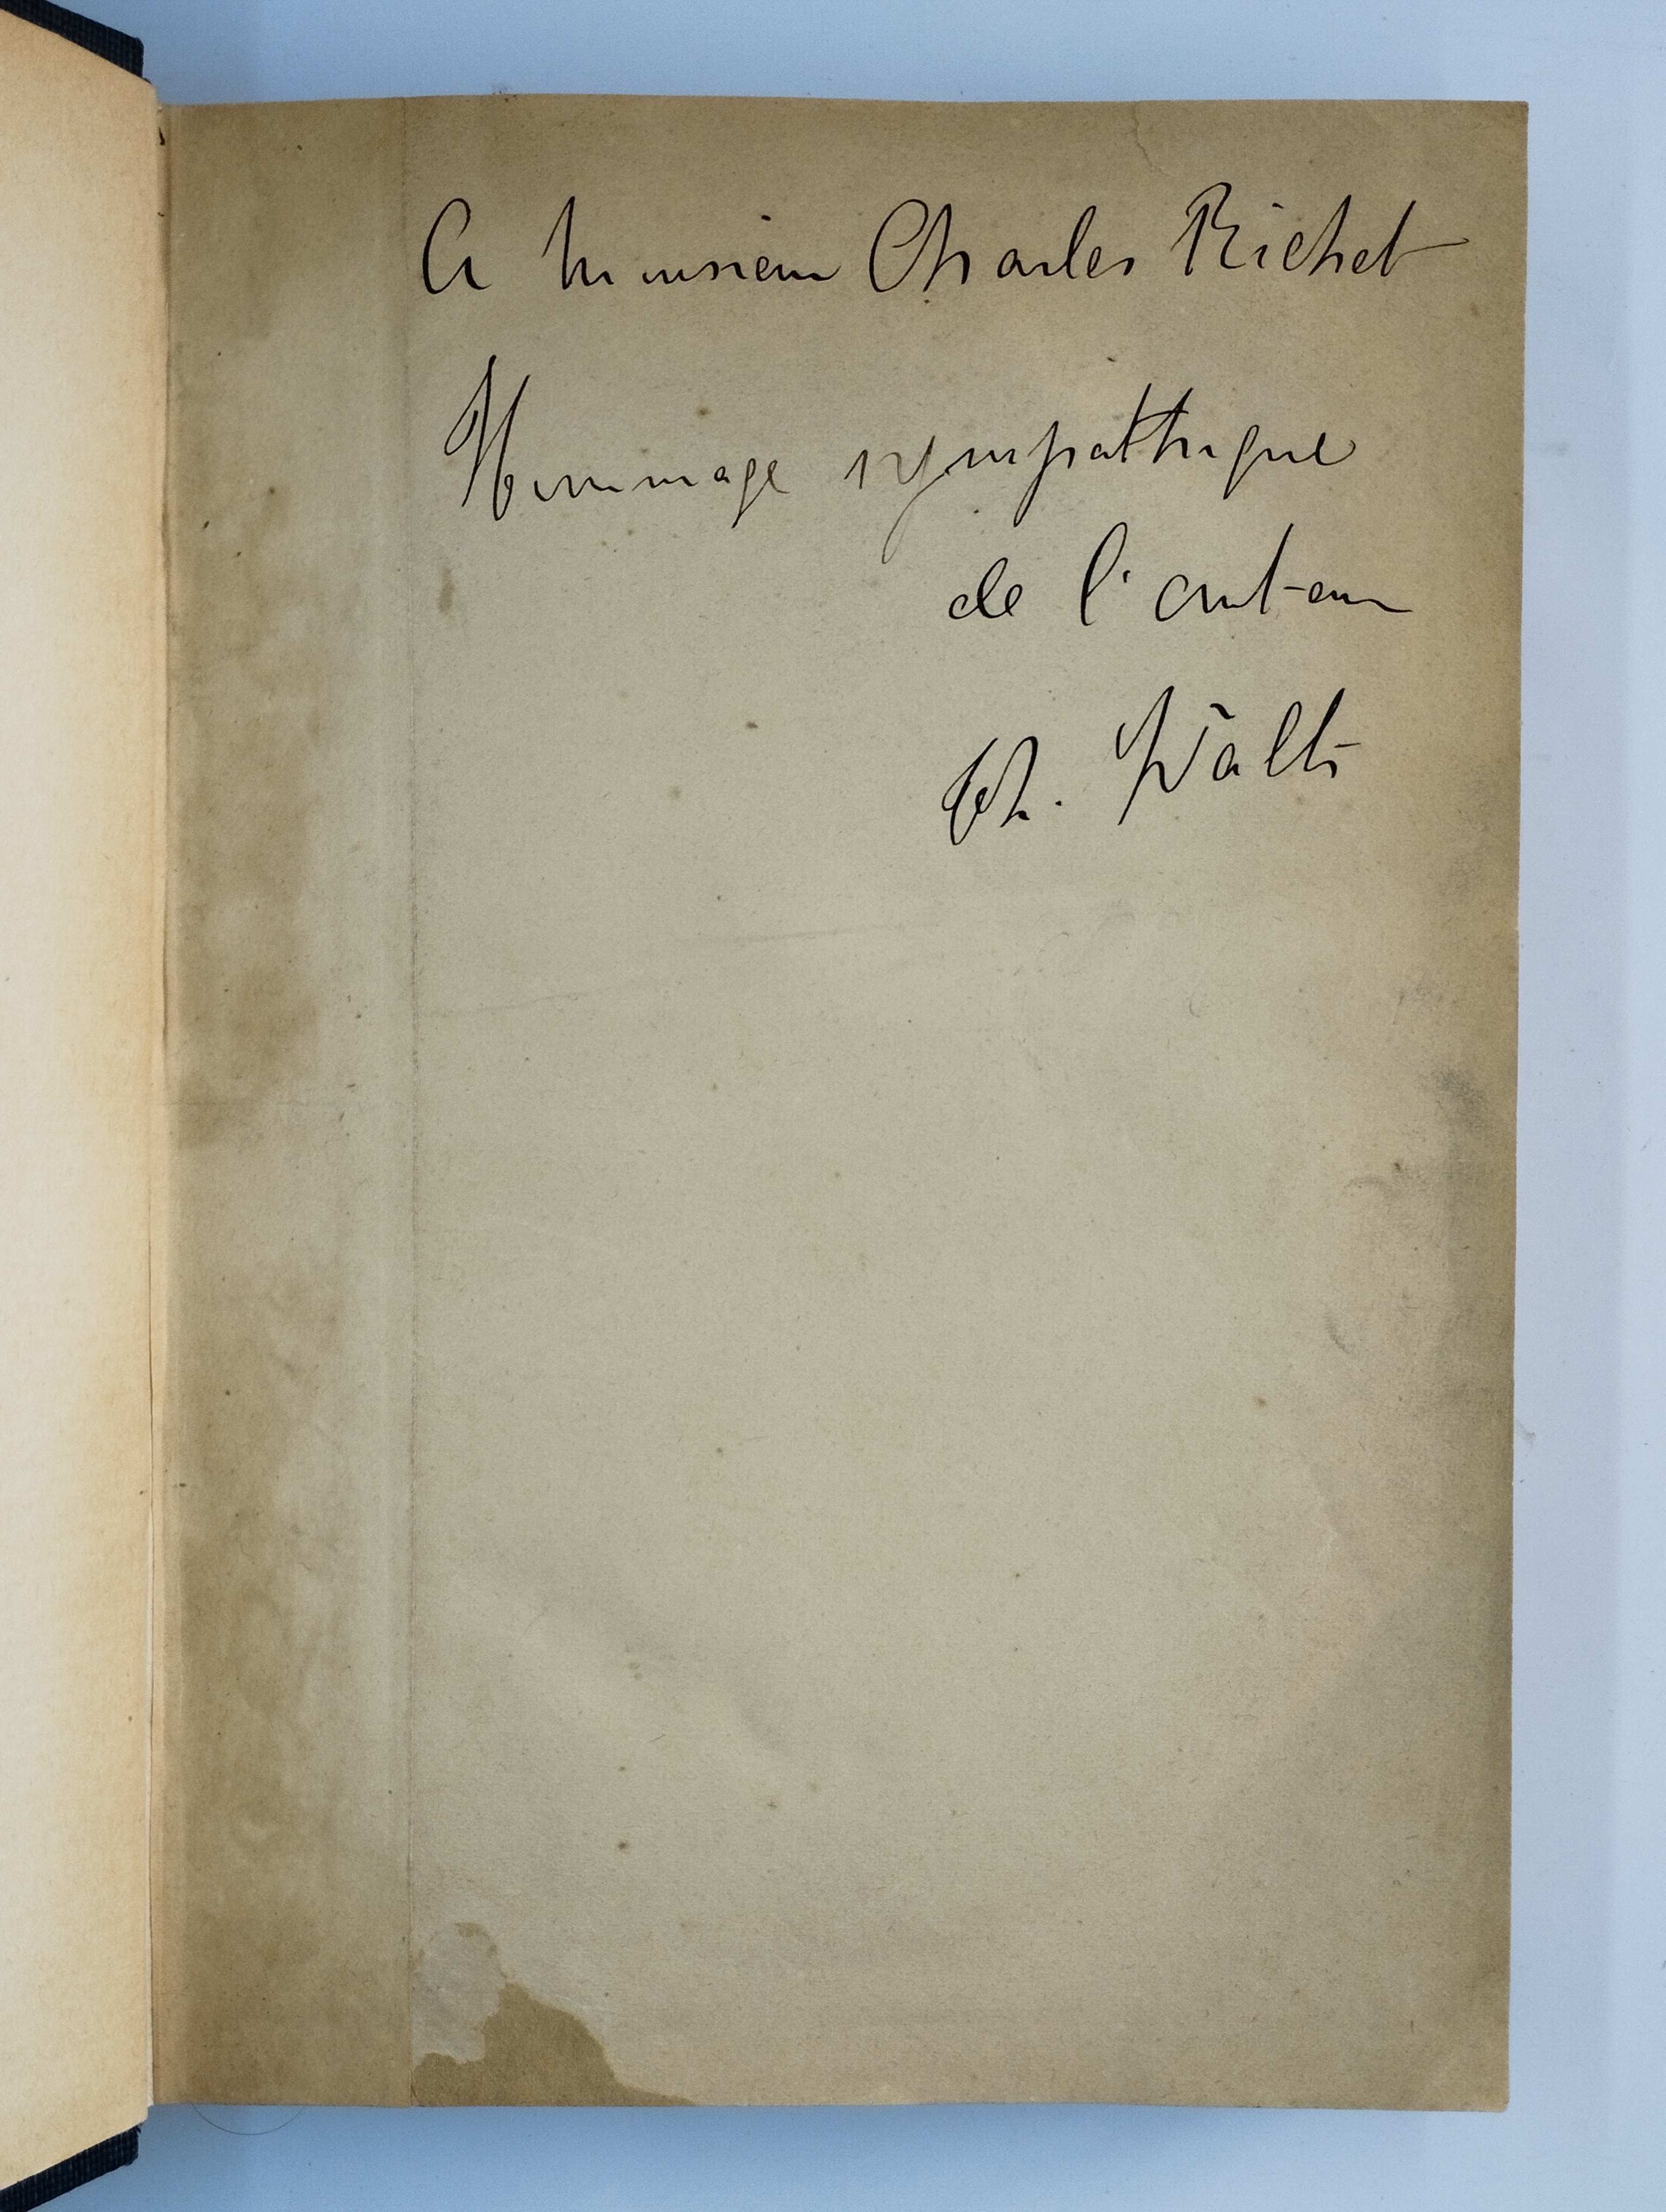 A Monsieur Charles Richet
Hommage sympathique
de l'auteur